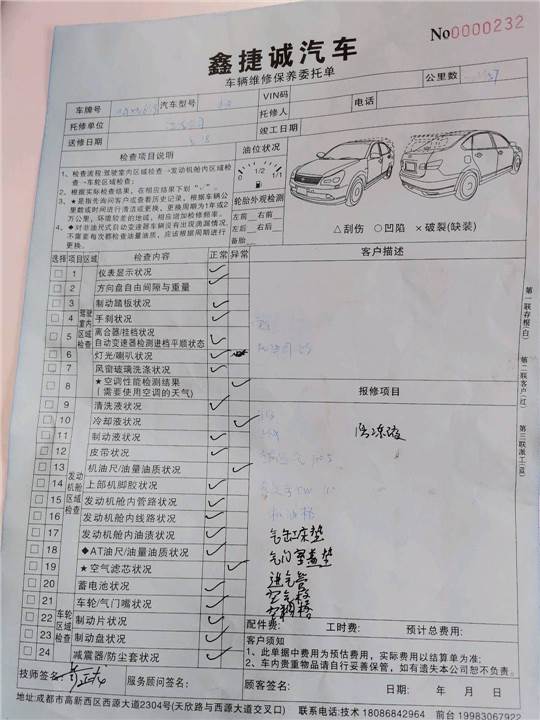 No0000232
鑫捷诚汽车
车辆维修保养委托单
公里数
车牌号 汽车型号 VIN码
托修单位 托修人 电话
送修日期 竣工日期
检查项目说明
1、检查流程:驾驶室内区域检查→发动机舱内区域检查→车轮区域检查;
2、根据实际检查结果,在相应结果下划“√”。
3、★是指先询问客户或查看历史记录,根据车辆公里数或时间进行清洁或更换,更换周期为1年或2万公里,环境较差的地域,相应增加检修频率。
4、◆对非油尺式自动变速器车辆没有出现滴漏情况,不需要每次都检查油量油质,应该根据周期进行更换。
油位状况
0 1/2 1/1
轮胎外观检测
左前 右前
左后 右后
备胎
△刮伤 ○凹陷 ×破裂(缺装)
选择 项目区域 检查内容 正常 异常
客户描述
驾驶室内区域检查
1 仪表显示状况
2 方向盘自由间隙与重量
3 制动踏板状况
4 手刹状况
5 离合器/挂档状况
自动变速器检测进档平顺状态
6 灯光/喇叭状况
7 风窗玻璃洗涤状况
8 ★空调性能检测结果
(需要使用空调的天气)
报修项目
发动机舱区域检查
9 清洗液状况
10 冷却液状况
11 制动液状况
12 皮带状况
13 机油尺/油量油质状况
14 上部机脚胶状况
15 发动机舱内管路状况
16 发动机舱内线路状况
17 发动机舱内油渍状况
18 ◆AT油尺/油量油质状况
19 ★空气滤芯状况
20 蓄电池状况
车轮区域检查
21 车轮/气门嘴状况
22 制动片状况
23 制动盘状况
24 减震器/防尘套状况
防冻液
机油格
气缸床垫
气门室盖垫
进气管
空气格
空调格
配件费: 工时费: 预计总费用:
客户须知
1、此单据中费用为预估费用,实际费用以结算单为准;
2、车内贵重物品请自行妥善保管,如有遗失本公司恕不负责。
技师签名: 服务顾问签名: 顾客签名: 日期: 年 月 日
地址:成都市高新西区西源大道2304号(天欣路与西源大道交叉口) 技术电话:18086842964 前台:19983067922
第一联存根(白)
第二联客户(红)
第三联派工(蓝)